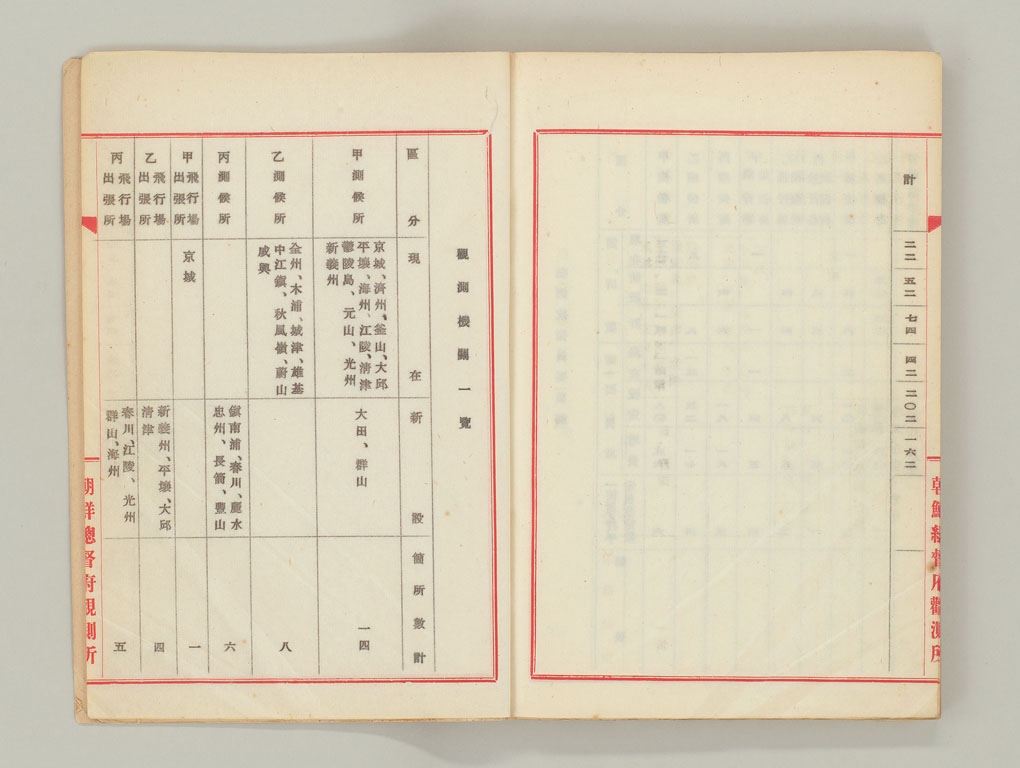 朝鮮總督府觀測所
計 二二 五二 七四 四二 二〇二 一六二
觀測機關一覽
區分 現在 新設 箇所數計
甲測候所
京城、濟州、釜山、大邱
平壤、海州、江陵、清津
鬱陵島、元山、光州
新義州
大田、群山
一四
乙測候所
全州、木浦、城津、雄基
中江鎭、秋風嶺、蔚山
咸興
八
丙測候所
鎭南浦、春川、麗水
忠州、長箭、豐山
六
甲飛行場
出張所
京城
一
乙飛行場
出張所
新義州、平壤、大邱
清津
四
丙飛行場
出張所
春川、江陵、光州
群山、海州
五
朝鮮總督府觀測所